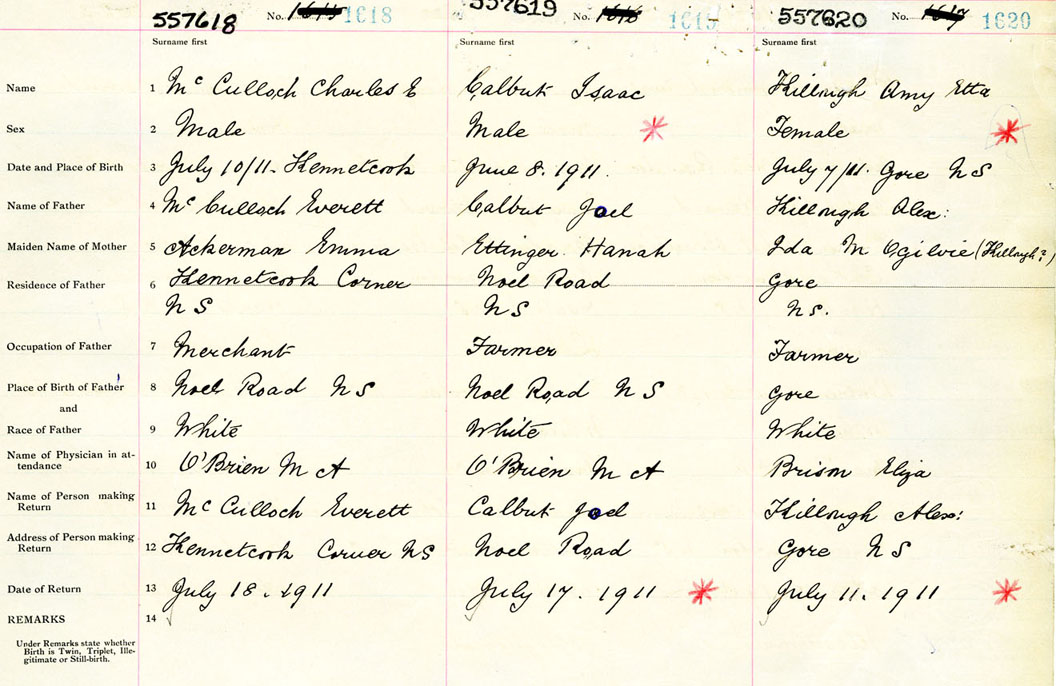 557618 No. 1618
557619 No. 1619
557620 No. 1620
Surname first Surname first Surname first
Name 1 Mc Culloch Charles E Calbut Isaac Killough Amy Etta
Sex 2 Male Male Female
Date and Place of Birth 3 July 10/11. Kennetcook June 8. 1911. July 7/11. Gore NS
Name of Father 4 Mc Culloch Everett Calbut Joel Killough Alex:
Maiden Name of Mother 5 Ackerman Emma Ettinger Hanah Ida M Ogilvie (Killough?)
Residence of Father 6 Kennetcook Corner Noel Road Gore
NS NS NS.
Occupation of Father 7 Merchant Farmer Farmer
Place of Birth of Father 8 Noel Road NS Noel Road NS Gore
and
Race of Father 9 White White White
Name of Physician in at-
tendance 10 O'Brien M A O'Brien M A Brison Eliza
Name of Person making
Return 11 Mc Culloch Everett Calbut Joel Killough Alex:
Address of Person making
Return 12 Kennetcook Corner NS Noel Road Gore NS
Date of Return 13 July 18. 1911 July 17. 1911 July 11. 1911
REMARKS 14
Under Remarks state whether
Birth is Twin, Triplet, Ille-
gitimate or Still-birth.